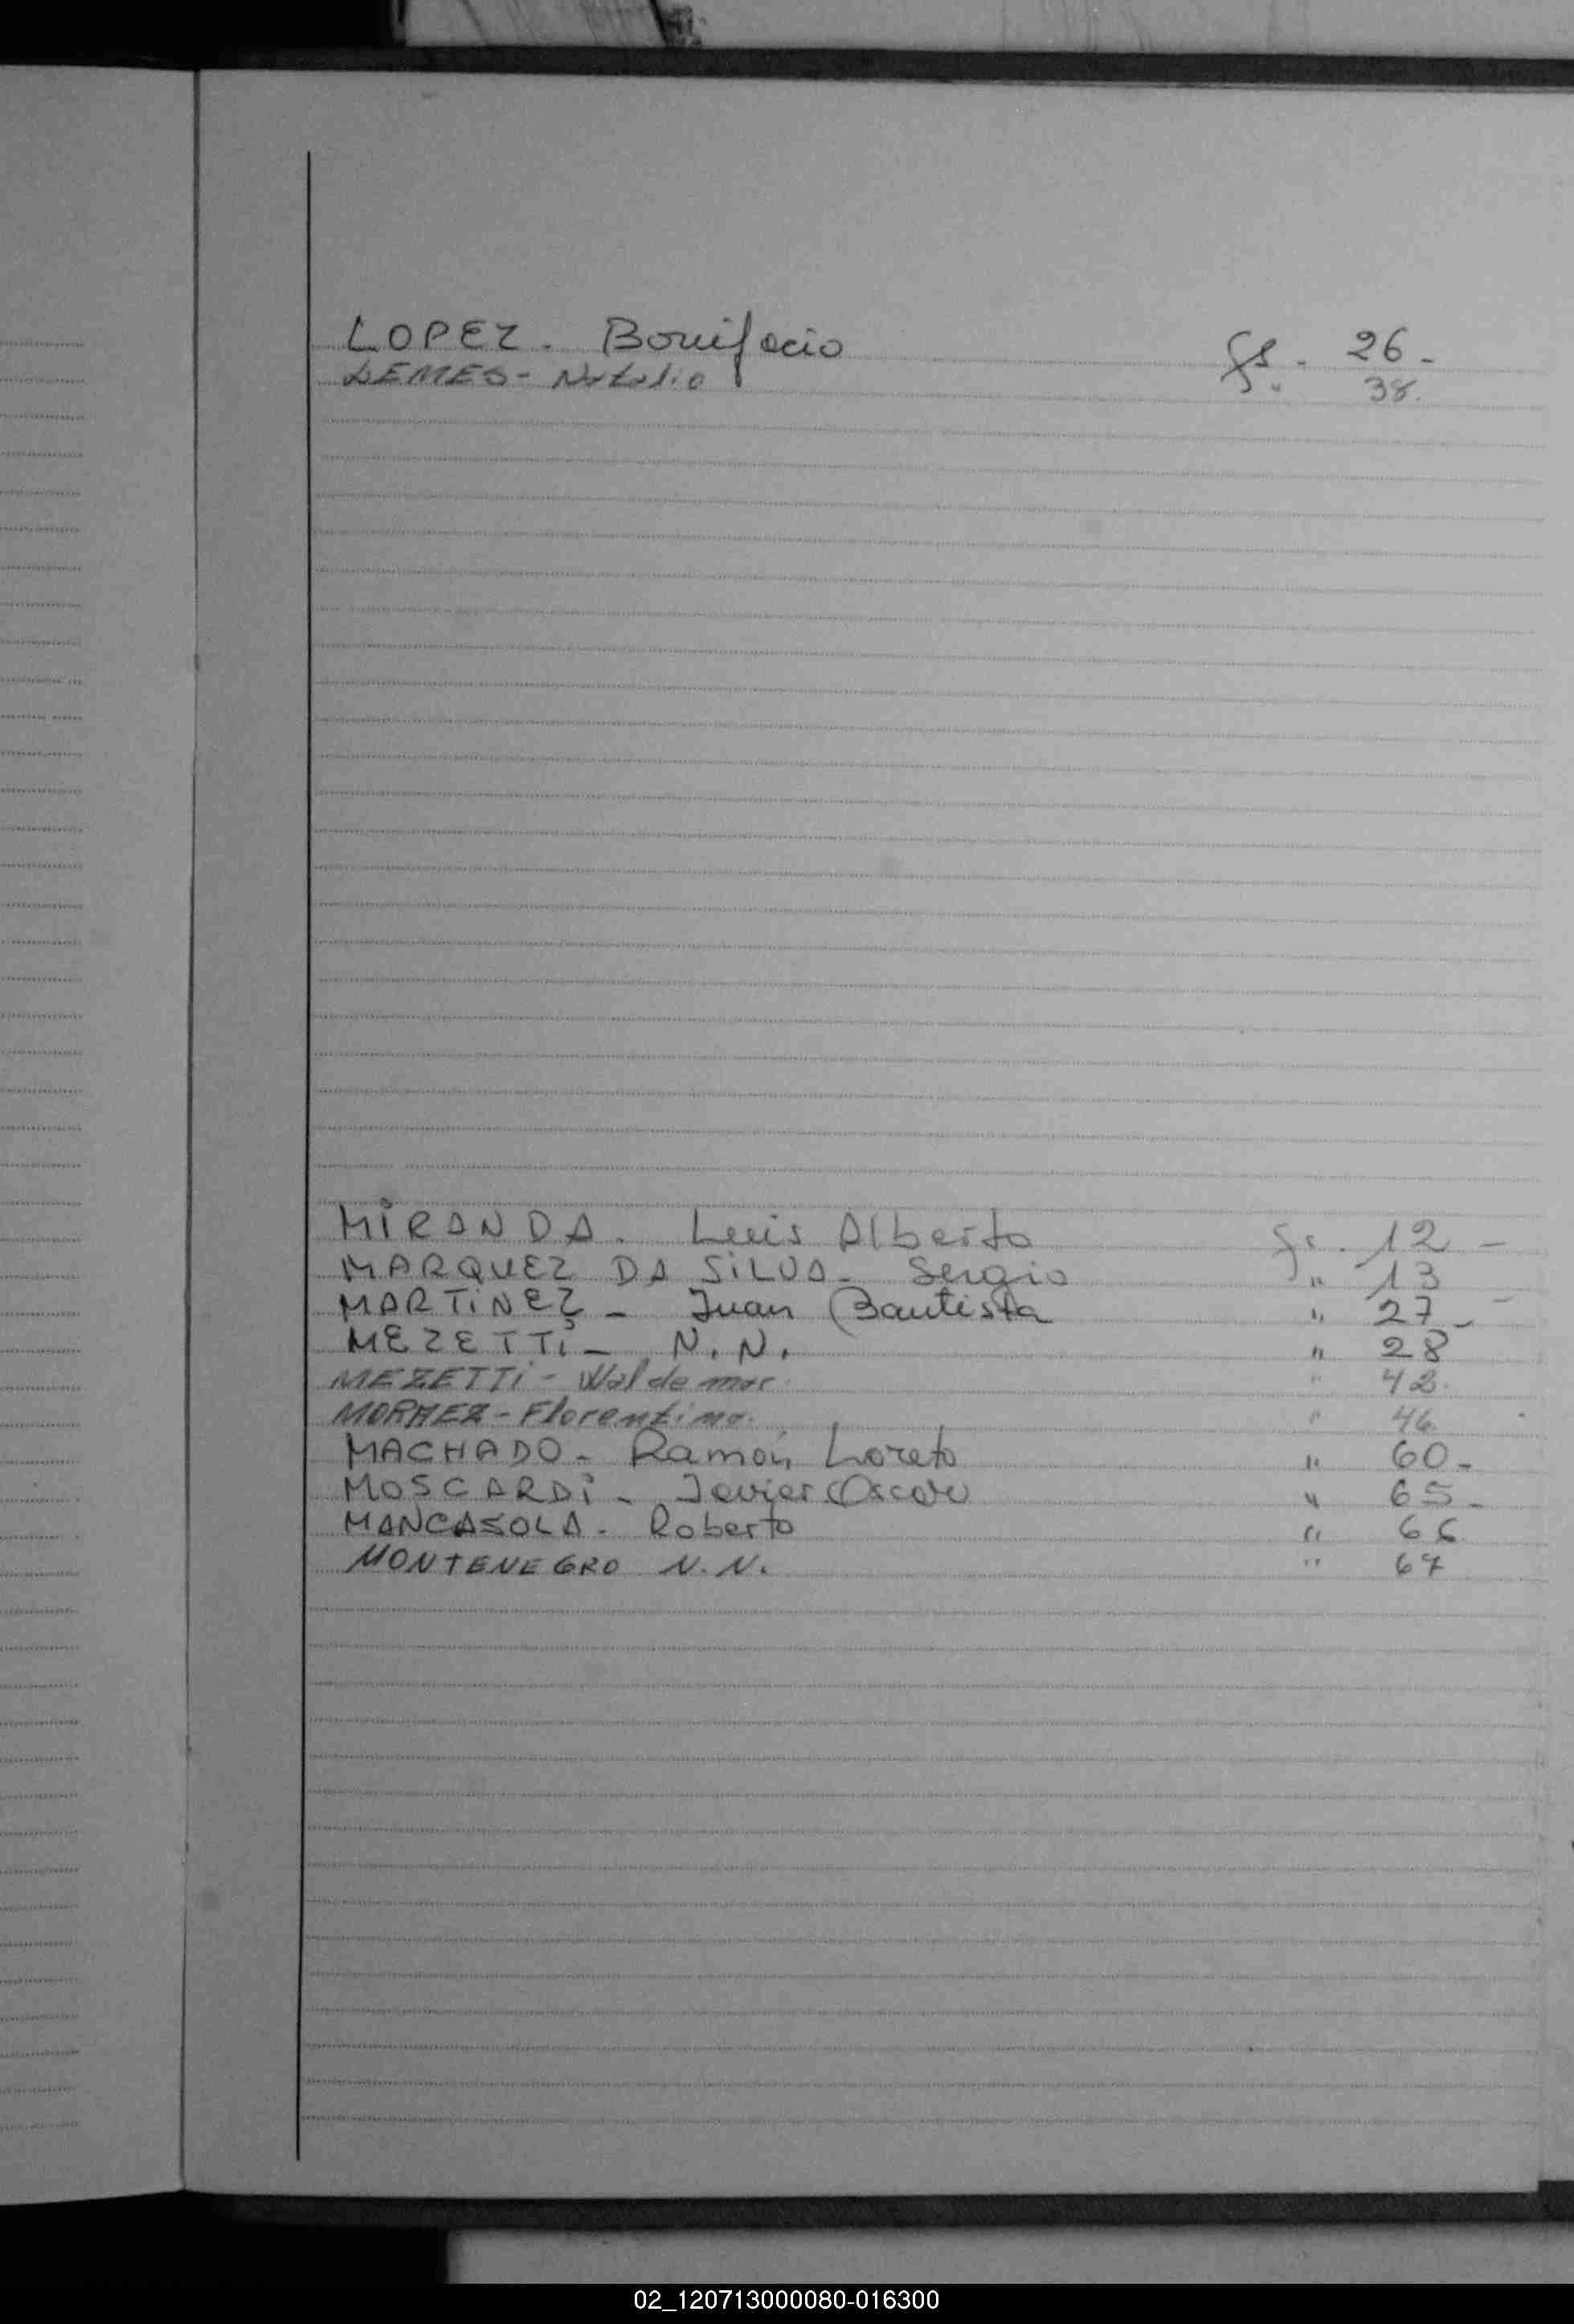 LOPEZ. Bonifacio fs. 26-
LEMES- Natalio " 38.
MiRANDA. Luis Alberto fs. 12 -
MARQUEZ DA SiLVA- Sergio " 13
MARTiNEZ - Juan Bautista " 27-
MEZETTi - N.N. " 28
MEZETTi - Waldemar " 42.
Florentino. " 46.
MACHADO- Ramón Loreto " 60-
MOSCARDi - Javier Oscar " 65-
MANCASOLA. Roberto " 66
MONTENEGRO N.N. " 67
02_120713000080-016300